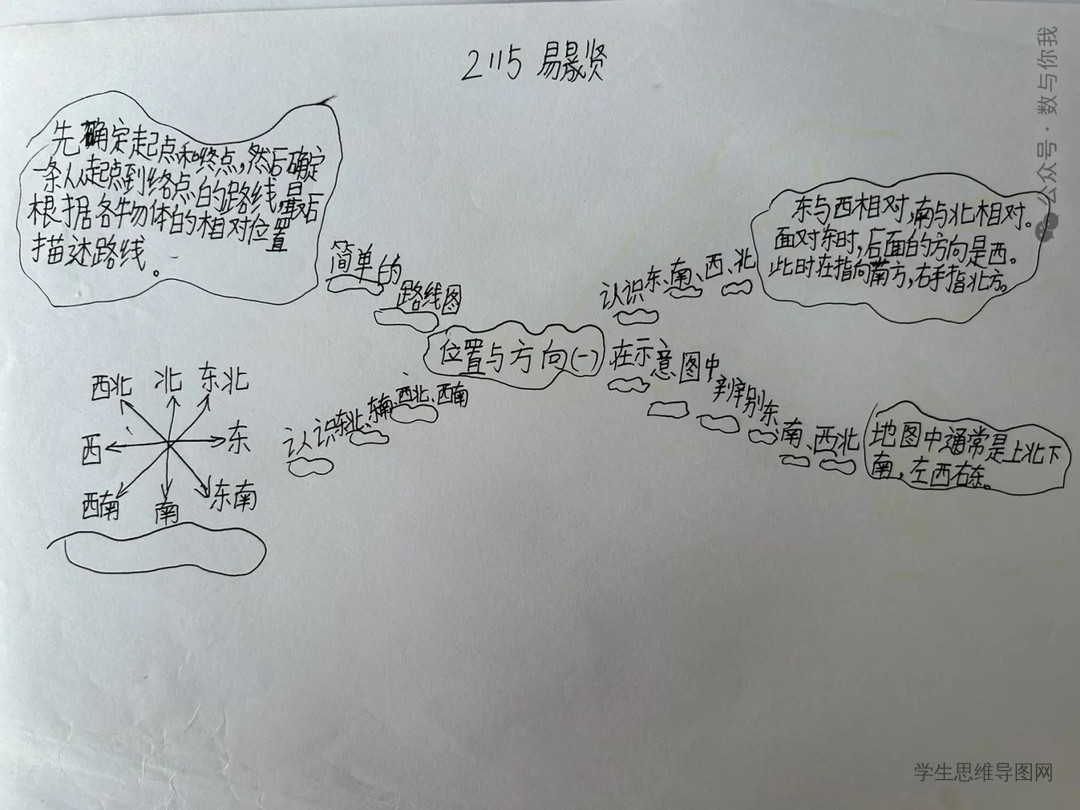 2115 易晸贤
先确定起点和终点,然后确定
一条从起点到终点的路线,最后
根据各牛物体的相对位置
描述路线。
简单的
路线图
东与西相对,南与北相对。
面对东时,后面的方向是西。
此时左指向南方,右手指北方。
认识东、南、西、北
位置与方向(一)
在示意图中
辨别东、南、西北
地图中通常是上北下
南,左西右东。
认识东北、东南、西北、西南
西北 北 东北
西 东
西南 南 东南
公众号·数与你我
学生思维导图网